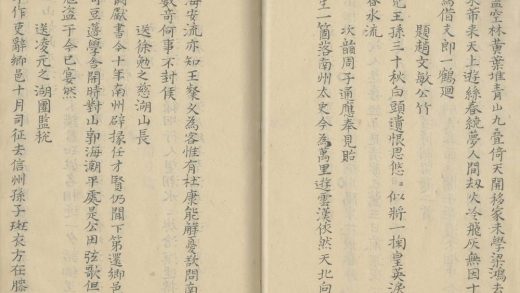 盡空林黃葉堆青山九疊倚天開移家未學梁鴻去
來市來天上遊絲春繞夢人間劫火冷飛灰無因十
為借文郎一鶴廻
題趙文敏公竹
記王孫三十秋白頭遺恨思悠〻似將一掬皇英淚
春水流
次韻周子通應奉見貽
生一箇落南州太史今為萬里遊雲漢俟然天北向
海安流亦知王粲又為客惟有杜康能解憂欲問南
數奇何事不封侯
送徐勉之慈湖山長
闕獻書今十年南州辟掾任才賢仍聞下第還鄉邑
可豆邊學舍開時對山郭海潮平處是公田弦歌但
寇盜于今已宴然
送凌元之湖團監稅
作吏辭鄉邑十月司征去信州孫子斑衣方在膝